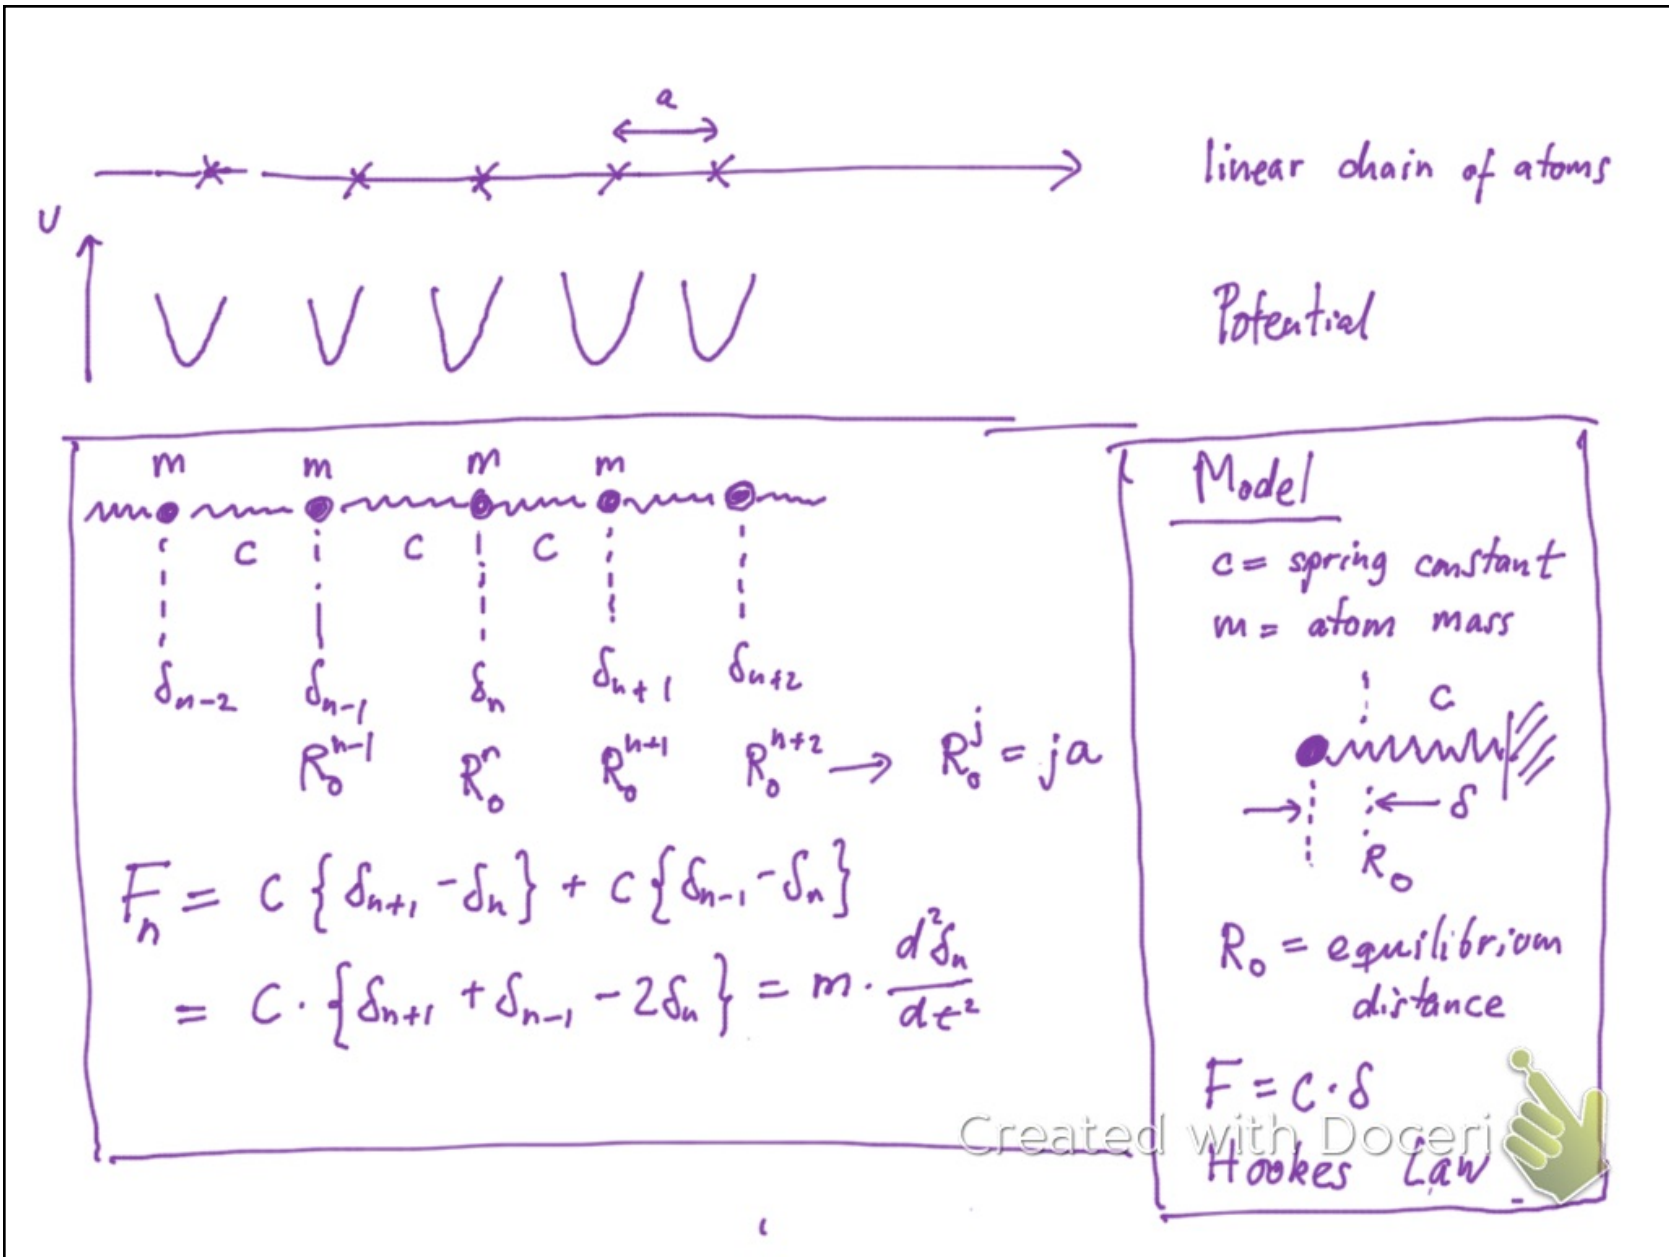 a
linear chain of atoms
U
Potential
m m m m
c c c
δₙ₋₂ δₙ₋₁ δₙ δₙ₊₁ δₙ₊₂
R₀ⁿ⁻¹ R₀ⁿ R₀ⁿ⁺¹ R₀ⁿ⁺² → R₀ʲ = ja
Fₙ = C {δₙ₊₁ - δₙ} + C {δₙ₋₁ - δₙ}
= C · {δₙ₊₁ + δₙ₋₁ - 2δₙ} = m · d²δₙ/dt²
Model
c = spring constant
m = atom mass
C
δ
R₀
R₀ = equilibrium
distance
F = C · δ
Hookes Law
Created with Doceri